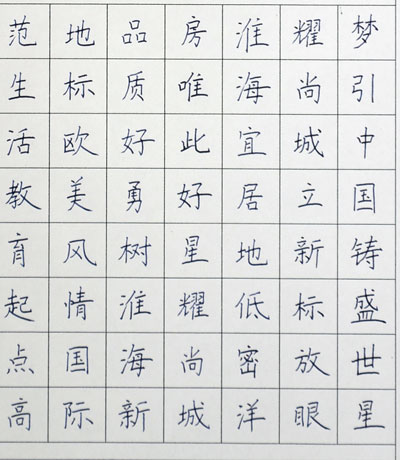 梦引中国铸盛世星
耀尚城立新标放眼
淮海宜居地低密洋
房唯此好星耀尚城
品质好勇树淮海新
地标欧美风情国际
范生活教育起点高